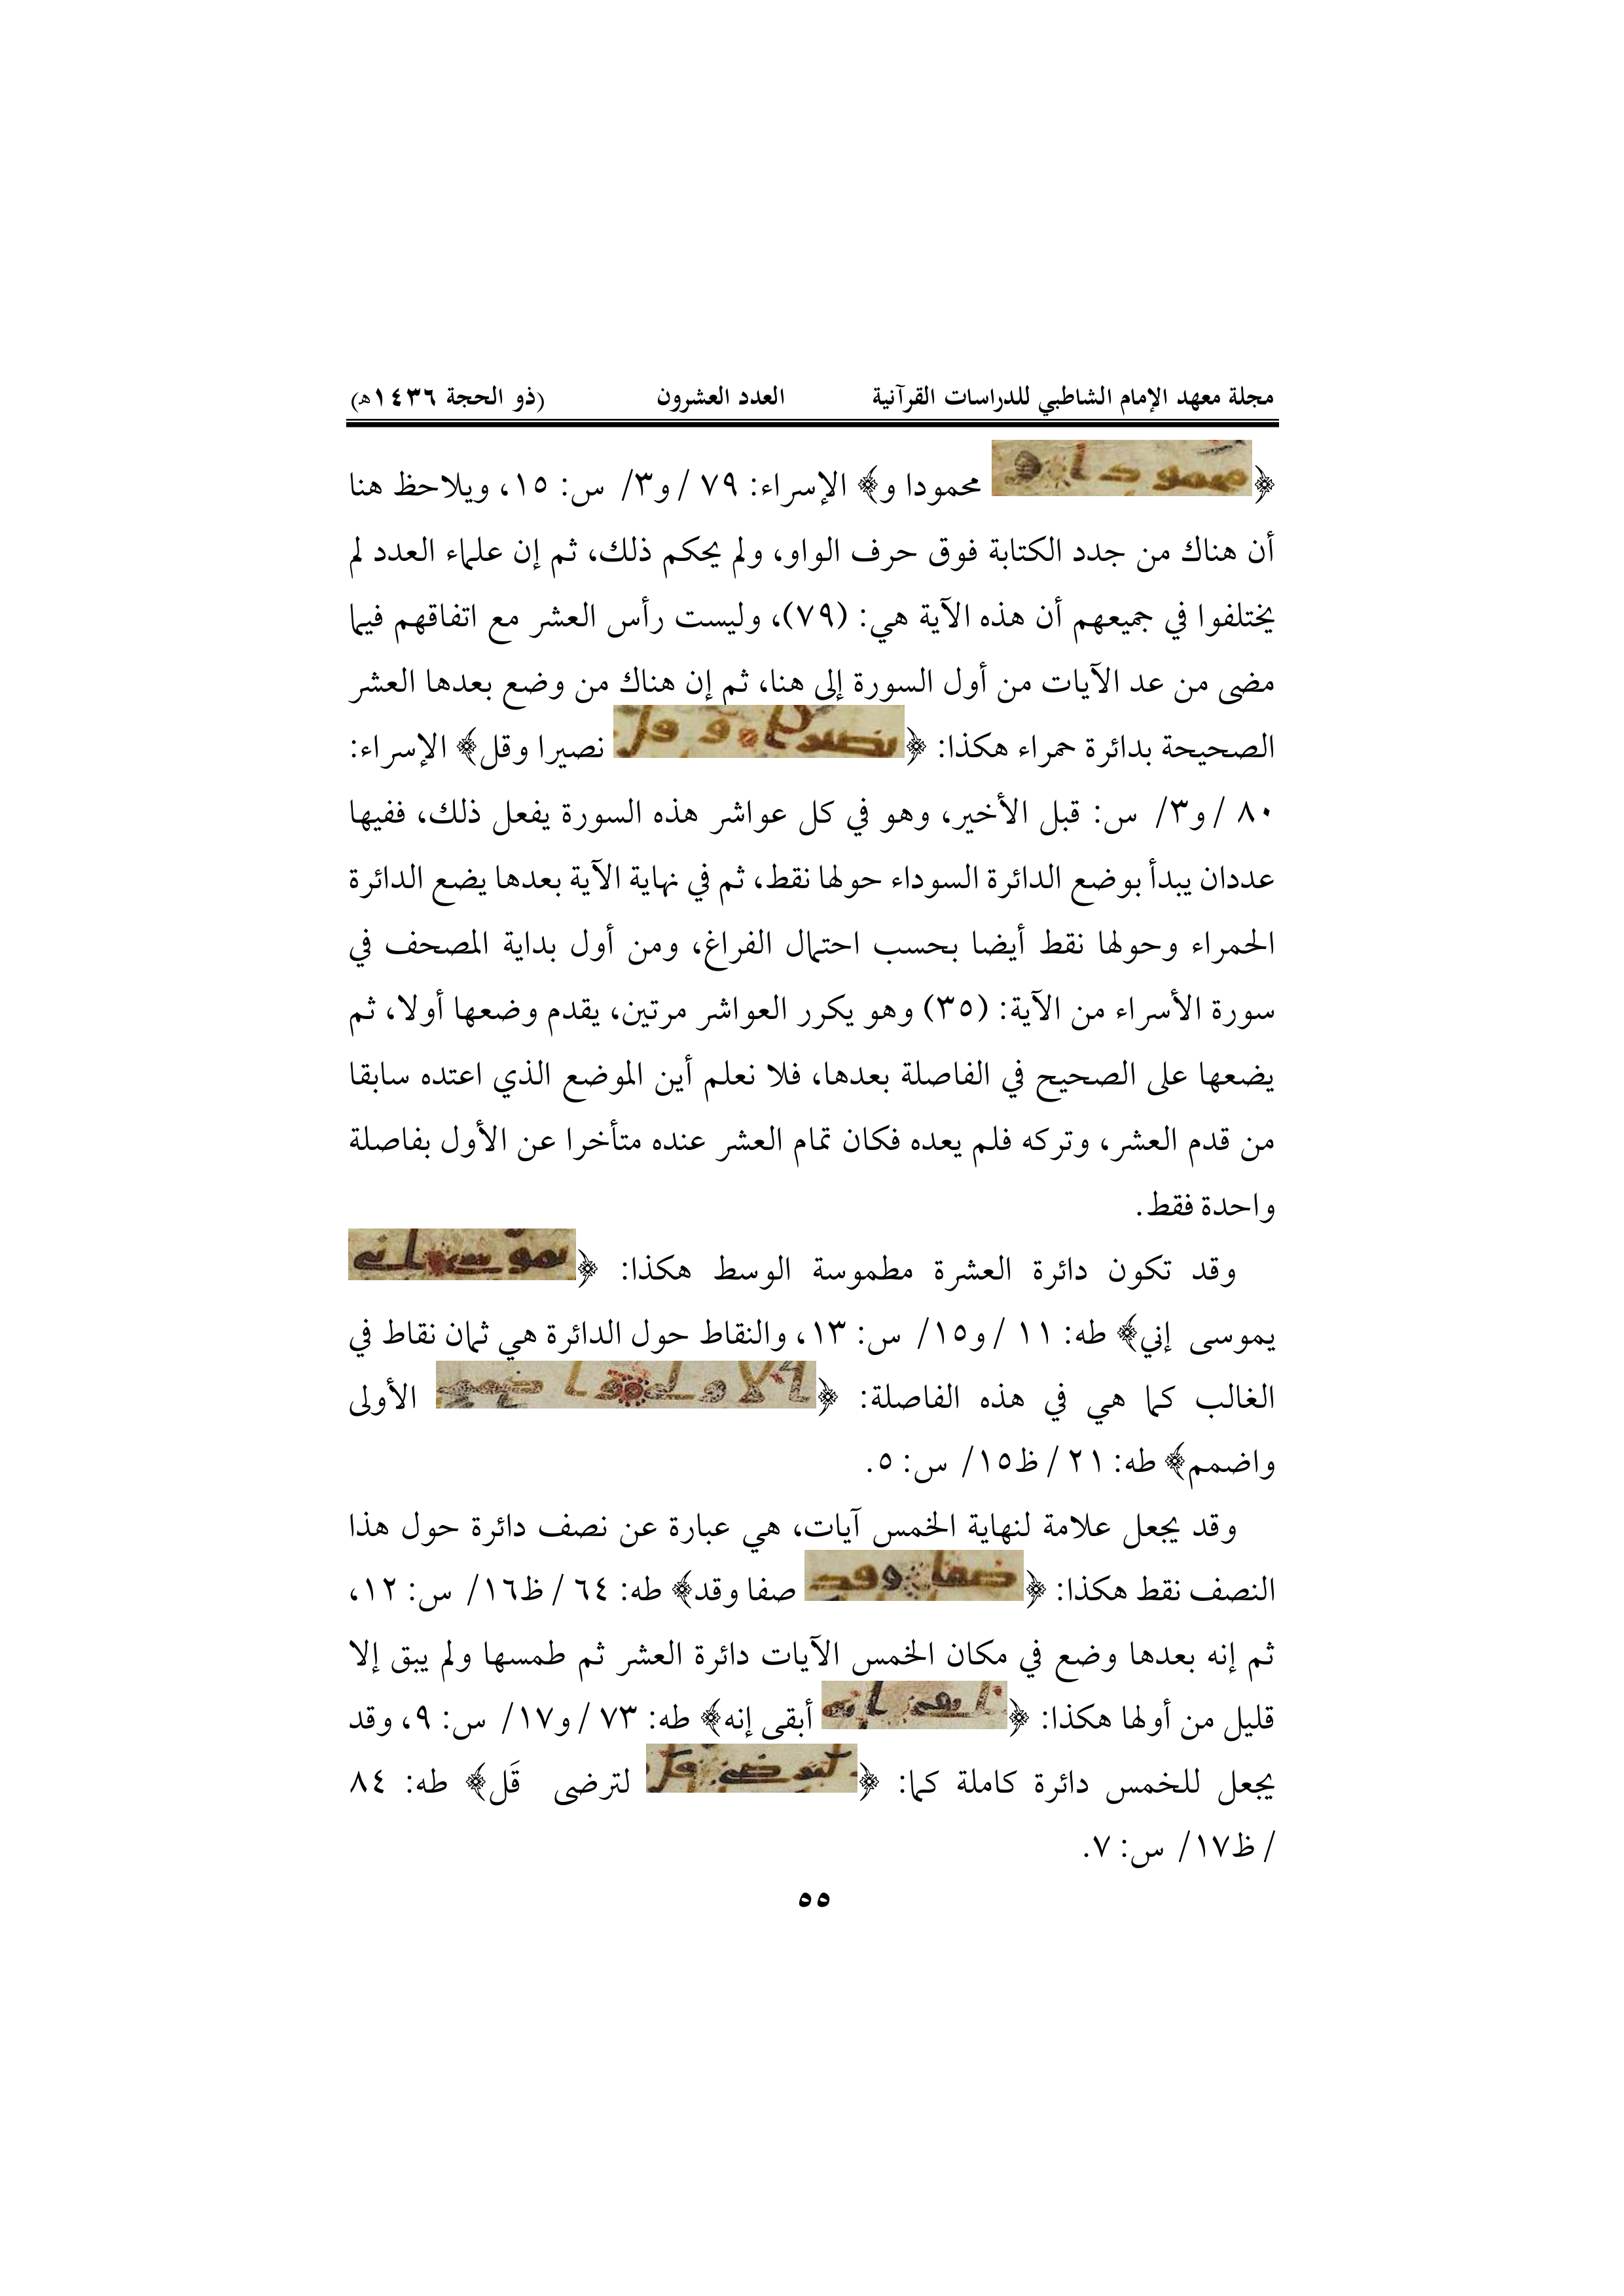 مجلة معهد الإمام الشاطبي للدراسات القرآنية العدد العشرون (ذو الحجة ١٤٣٦هـ)
﴿ محمودا و﴾ الإسراء: ٧٩ / و٣/ س: ١٥، ويلاحظ هنا
أن هناك من جدد الكتابة فوق حرف الواو، ولم يحكم ذلك، ثم إن علماء العدد لم
يختلفوا في جميعهم أن هذه الآية هي: (٧٩)، وليست رأس العشر مع اتفاقهم فيما
مضى من عد الآيات من أول السورة إلى هنا، ثم إن هناك من وضع بعدها العشر
الصحيحة بدائرة حمراء هكذا: ﴿ نصيرا وقل﴾ الإسراء:
٨٠ / و٣/ س: قبل الأخير، وهو في كل عواشر هذه السورة يفعل ذلك، ففيها
عددان يبدأ بوضع الدائرة السوداء حولها نقط، ثم في نهاية الآية بعدها يضع الدائرة
الحمراء وحولها نقط أيضا بحسب احتمال الفراغ، ومن أول بداية المصحف في
سورة الأسراء من الآية: (٣٥) وهو يكرر العواشر مرتين، يقدم وضعها أولا، ثم
يضعها على الصحيح في الفاصلة بعدها، فلا نعلم أين الموضع الذي اعتده سابقا
من قدم العشر، وتركه فلم يعده فكان تمام العشر عنده متأخرا عن الأول بفاصلة
واحدة فقط.
وقد تكون دائرة العشرة مطموسة الوسط هكذا: ﴿
يموسى إني﴾ طه: ١١ / و١٥/ س: ١٣، والنقاط حول الدائرة هي ثمان نقاط في
الغالب كما هي في هذه الفاصلة: ﴿ الأولى
واضمم﴾ طه: ٢١ / ظ١٥/ س: ٥.
وقد يجعل علامة لنهاية الخمس آيات، هي عبارة عن نصف دائرة حول هذا
النصف نقط هكذا: ﴿ صفا وقد﴾ طه: ٦٤ / ظ١٦/ س: ١٢،
ثم إنه بعدها وضع في مكان الخمس الآيات دائرة العشر ثم طمسها ولم يبق إلا
قليل من أولها هكذا: ﴿ أبقى إنه﴾ طه: ٧٣ / و١٧/ س: ٩، وقد
يجعل للخمس دائرة كاملة كما: ﴿ لترضى قَل﴾ طه: ٨٤
/ ظ١٧/ س: ٧.
٥٥